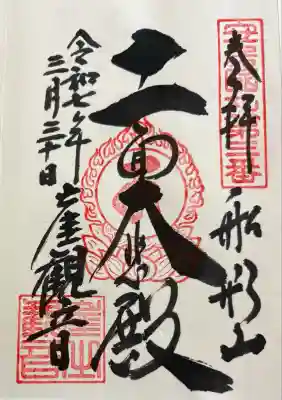 奉拝
船形山
十一面大悲殿
崖観音
令和七年
三月三十日